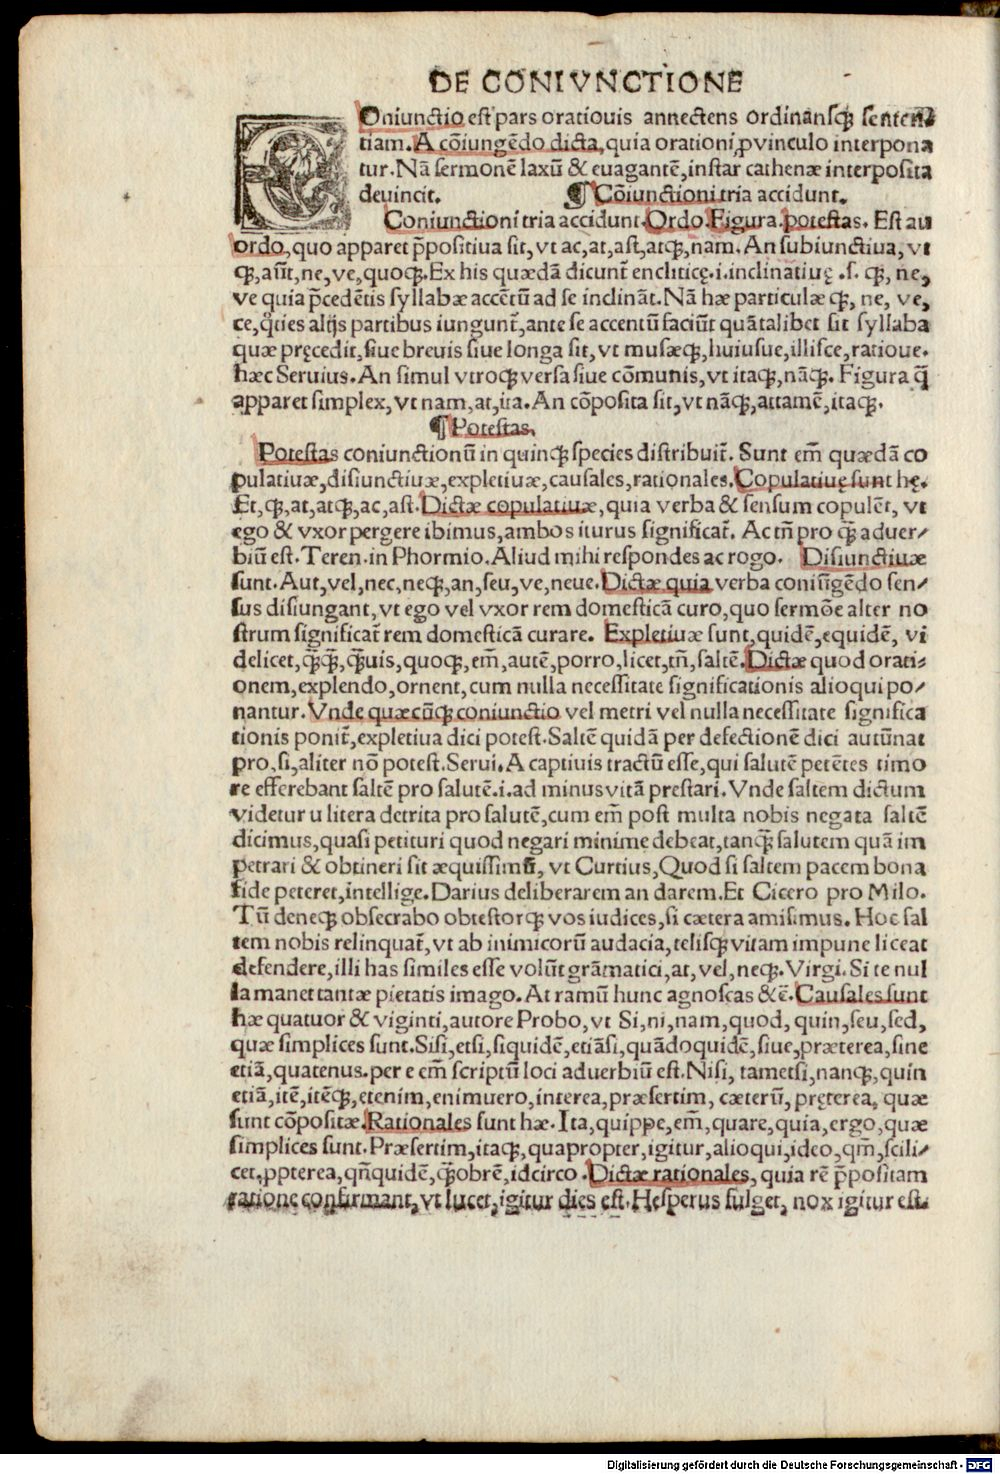 DE CONIVNCTIONE
COniunctio est pars oratiouis annectens ordinansq̃ senten
tiam. A cõiungẽdo dicta, quia orationi ꝓ vinculo interpona
tur. Nã sermonẽ laxũ & euagantẽ, instar cathenæ interposita
deuincit. ¶ Cõiunctioni tria accidunt.
Coniunctioni tria accidunt. Ordo. Figura. potestas. Est au
ordo, quo apparet p̃positiua sit, vt ac, at, ast, atq̃, nam. An subiunctiua, vt
q̃, aũt, ne, ve, quoq̃. Ex his quædã dicunt̃ encliticę .i. inclinatiuę .s. q̃, ne,
ve quia p̃cedẽtis syllabæ accẽtũ ad se inclinãt. Nã hæ particulæ q̃, ne, ve,
ce, q̃ties alijs partibus iungunt̃, ante se accentũ faciũt quãtalibet sit syllaba
quæ pręcedit, siue breuis siue longa sit, vt musæq̃, huiusue, illisce, ratioue.
hæc Seruius. An simul vtroq̃ versa siue cõmunis, vt itaq̃, nãq̃. Figura q̃
apparet simplex, vt nam, at, ita. An cõposita sit, vt nãq̃, attamẽ, itaq̃.
¶ Potestas.
Potestas coniunctionũ in quinq̃ species distribuit̃. Sunt em̃ quædã co
pulatiuæ, disiunctiuæ, expletiuæ, causales, rationales. Copulatiuę sunt hę.
Et, q̃, at, atq̃, ac, ast. Dictæ copulatiuæ, quia verba & sensum copulẽt, vt
ego & vxor pergere ibimus, ambos iturus significat̃. Ac tñ pro q̃ aduer⸗
biũ est. Teren. in Phormio. Aliud mihi respondes ac rogo. Disiunctiuæ
sunt. Aut, vel, nec, neq̃, an, seu, ve, neue. Dictæ quia verba coniũgẽdo sen⸗
sus disiungant, vt ego vel vxor rem domesticã curo, quo sermõe alter no
strum significat̃ rem domesticã curare. Expletiuæ sunt, quidẽ, equidẽ, vi
delicet, q̃q̃, q̃uis, quoq̃, em̃, autẽ, porro, licet, tñ, saltẽ. Dictæ quod orati⸗
onem, explendo, ornent, cum nulla necessitate significationis alioqui po⸗
nantur. Vnde quæcũq̃ coniunctio vel metri vel nulla necessitate significa
tionis ponit̃, expletiua dici potest. Saltẽ quidã per defectionẽ dici autũnat
pro, si, aliter nõ potest. Serui. A captiuis tractũ esse, qui salutẽ petẽtes timo
re efferebant saltẽ pro salutẽ .i. ad minus vitã prestari. Vnde saltem dictum
videtur u litera detrita pro salutẽ, cum em̃ post multa nobis negata saltẽ
dicimus, quasi petituri quod negari minime debeat, tanq̃ salutem quã im
petrari & obtineri sit æquissimũ, vt Curtius, Quod si saltem pacem bona
fide peteret, intellige. Darius deliberarem an darem. Et Cicero pro Milo.
Tũ deneq̃ obsecrabo obtestorq̃ vos iudices, si cætera amisimus. Hoc sal
tem nobis relinquat̃, vt ab inimicorũ audacia, telisq̃ vitam impune liceat
defendere, illi has similes esse volũt grãmatici, at, vel, neq̃. Virgi. Si te nul
la manet tantæ pietatis imago. At ramũ hunc agnoscas &c̃. Causales sunt
hæ quatuor & viginti, autore Probo, vt Si, ni, nam, quod, quin, seu, sed,
quæ simplices sunt. Sisi, etsi, siquidẽ, etiãsi, quãdoquidẽ, siue, præterea, sine
etiã, quatenus. per e em̃ scriptũ loci aduerbiũ est. Nisi, tametsi, nanq̃, quin
etiã, itẽ, itẽq̃, etenim, enimuero, interea, præsertim, cæterũ, pręterea, quæ
sunt cõpositæ. Rationales sunt hæ. Ita, quippe, em̃, quare, quia, ergo, quæ
simplices sunt. Præsertim, itaq̃, quapropter, igitur, alioqui, ideo, qm̃, scili⸗
cet, ꝓpterea, qñquidẽ, q̃obrẽ, idcirco. Dictæ rationales, quia rẽ p̃positam
ratione confirmant, vt lucet, igitur dies est. Hesperus fulget, nox igitur est.
Digitalisierung gefördert durch die Deutsche Forschungsgemeinschaft - DFG